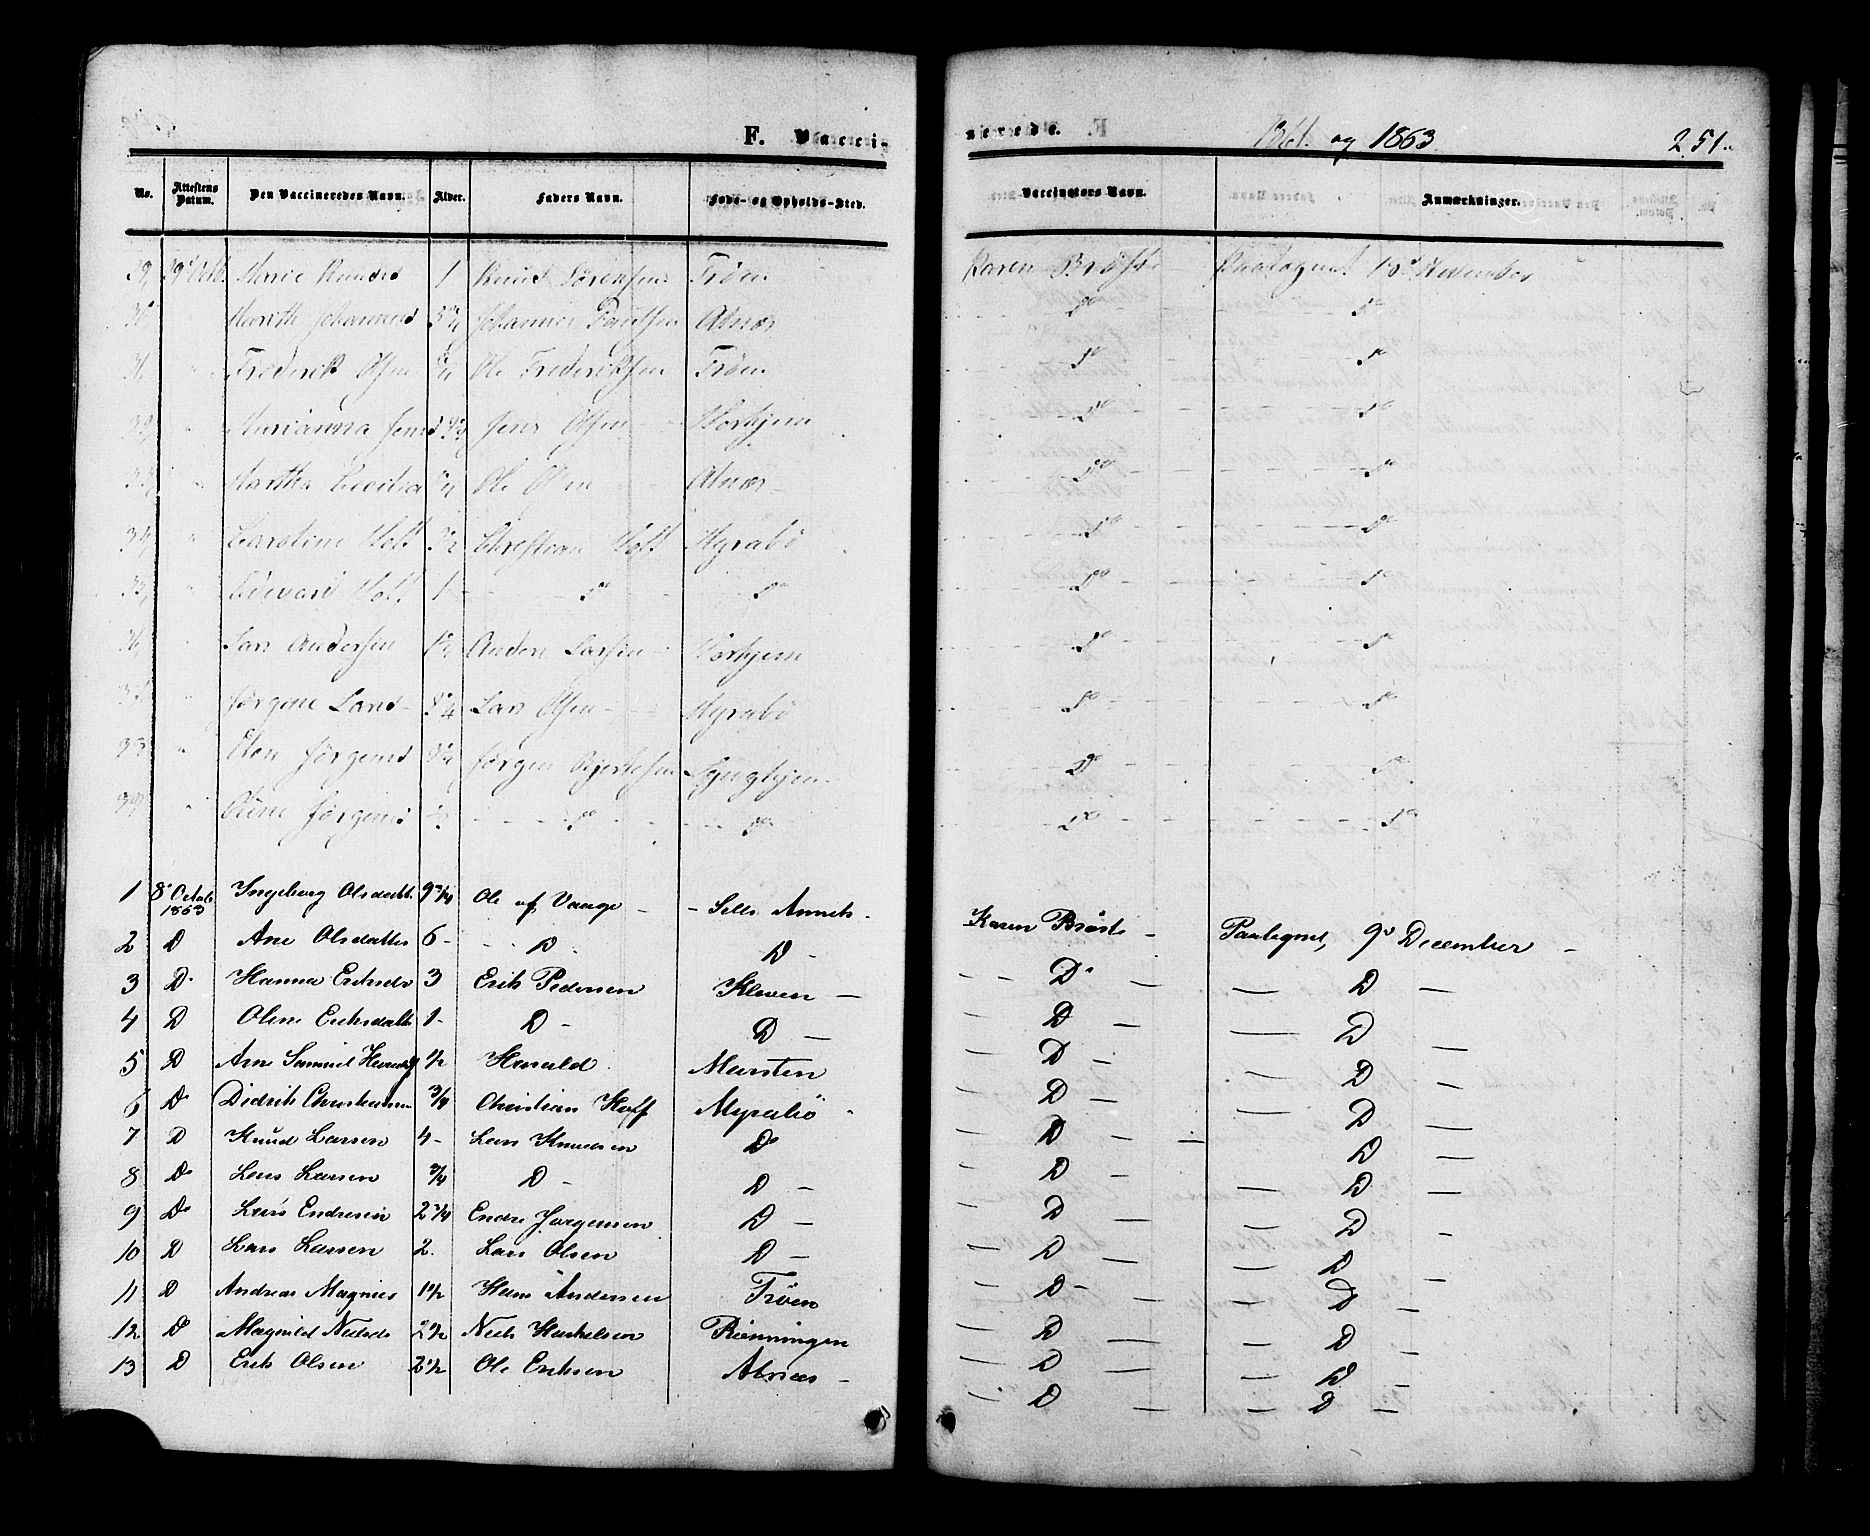 F. Vacci-
nerede.
1861 og 1863
251.
No. | Attestens Datum. | Den Vaccineredes Navn. | Alder. | Faders Navn. | Føde- og Opholds-Sted. | Vaccinators Navn. | Anmærkninger.
29 | 29d Octb. | Marie Knudsd | 1 | Knud Sørensen | Trøen | Karen Brøste | Paategnet 10d November
30 | " | Marith Johannesd | | Johannes Paulsen | Alnæs | Do | Do
31 | " | Frederik Olsen | | Ole Frederiksen | Trøen | Do | Do
32 | " | Marianna Jensd | | Jens Olsen | | Do | Do
33 | " | Martha Cecilia | | Ole Olsen | Alnæs | Do | Do
34 | " | Caroline Holt | | Christian Holt | Myrabö | Do | Do
35 | " | Edevard Holt | 1 | Do | Do | Do | Do
36 | " | Lars Andersen | | Anders Larsen | | Do | Do
37 | " | Jørgine Larsd | | Lars Olsen | Myrabö | Do | Do
38 | " | Jørgensd | | Jørgen | | Do | Do
39 | " | Jørgensd | | Do | Do | Do | Do
1 | 8d Octob. 1863 | Ingeborg Olsdatt. | 9 3/4 | Ole af Vaage | Sells Annex | Karen Brøste | Paategnet, 9d December
2 | D | Ane Olsdatter | 6 | D | D | D | D
3 | D | Hanna Eriksdr | 3 | Erik Pedersen | Kleven | D | D
4 | D | Oline Eriksdatt | 1 | D | D | D | D
5 | D | Arne Samuel | 1/2 | Harald | Marsten | D | D
6 | D | Didrik Christiansen | 3/4 | Christian Hoff | Myrabö | D | D
7 | D | Knud Larsen | 4 | Lars Knudsen | D | D | D
8 | D | Lars Larsen | 3/4 | D | D | D | D
9 | D | Lars Endresen | 2 3/4 | Endre Jørgensen | D | D | D
10 | D | Lars Larsen | 2. | Lars Olsen | D | D | D
11 | D | Andreas Magnus | 1 1/2 | Hans Andersen | Trøen | D | D
12 | D | Magnild Nielsdr | 2 1/2 | Niels | Rønningen | D | D
13 | D | Erik Olsen | 2 1/2 | Ole Eriksen | Alnæs | D | D